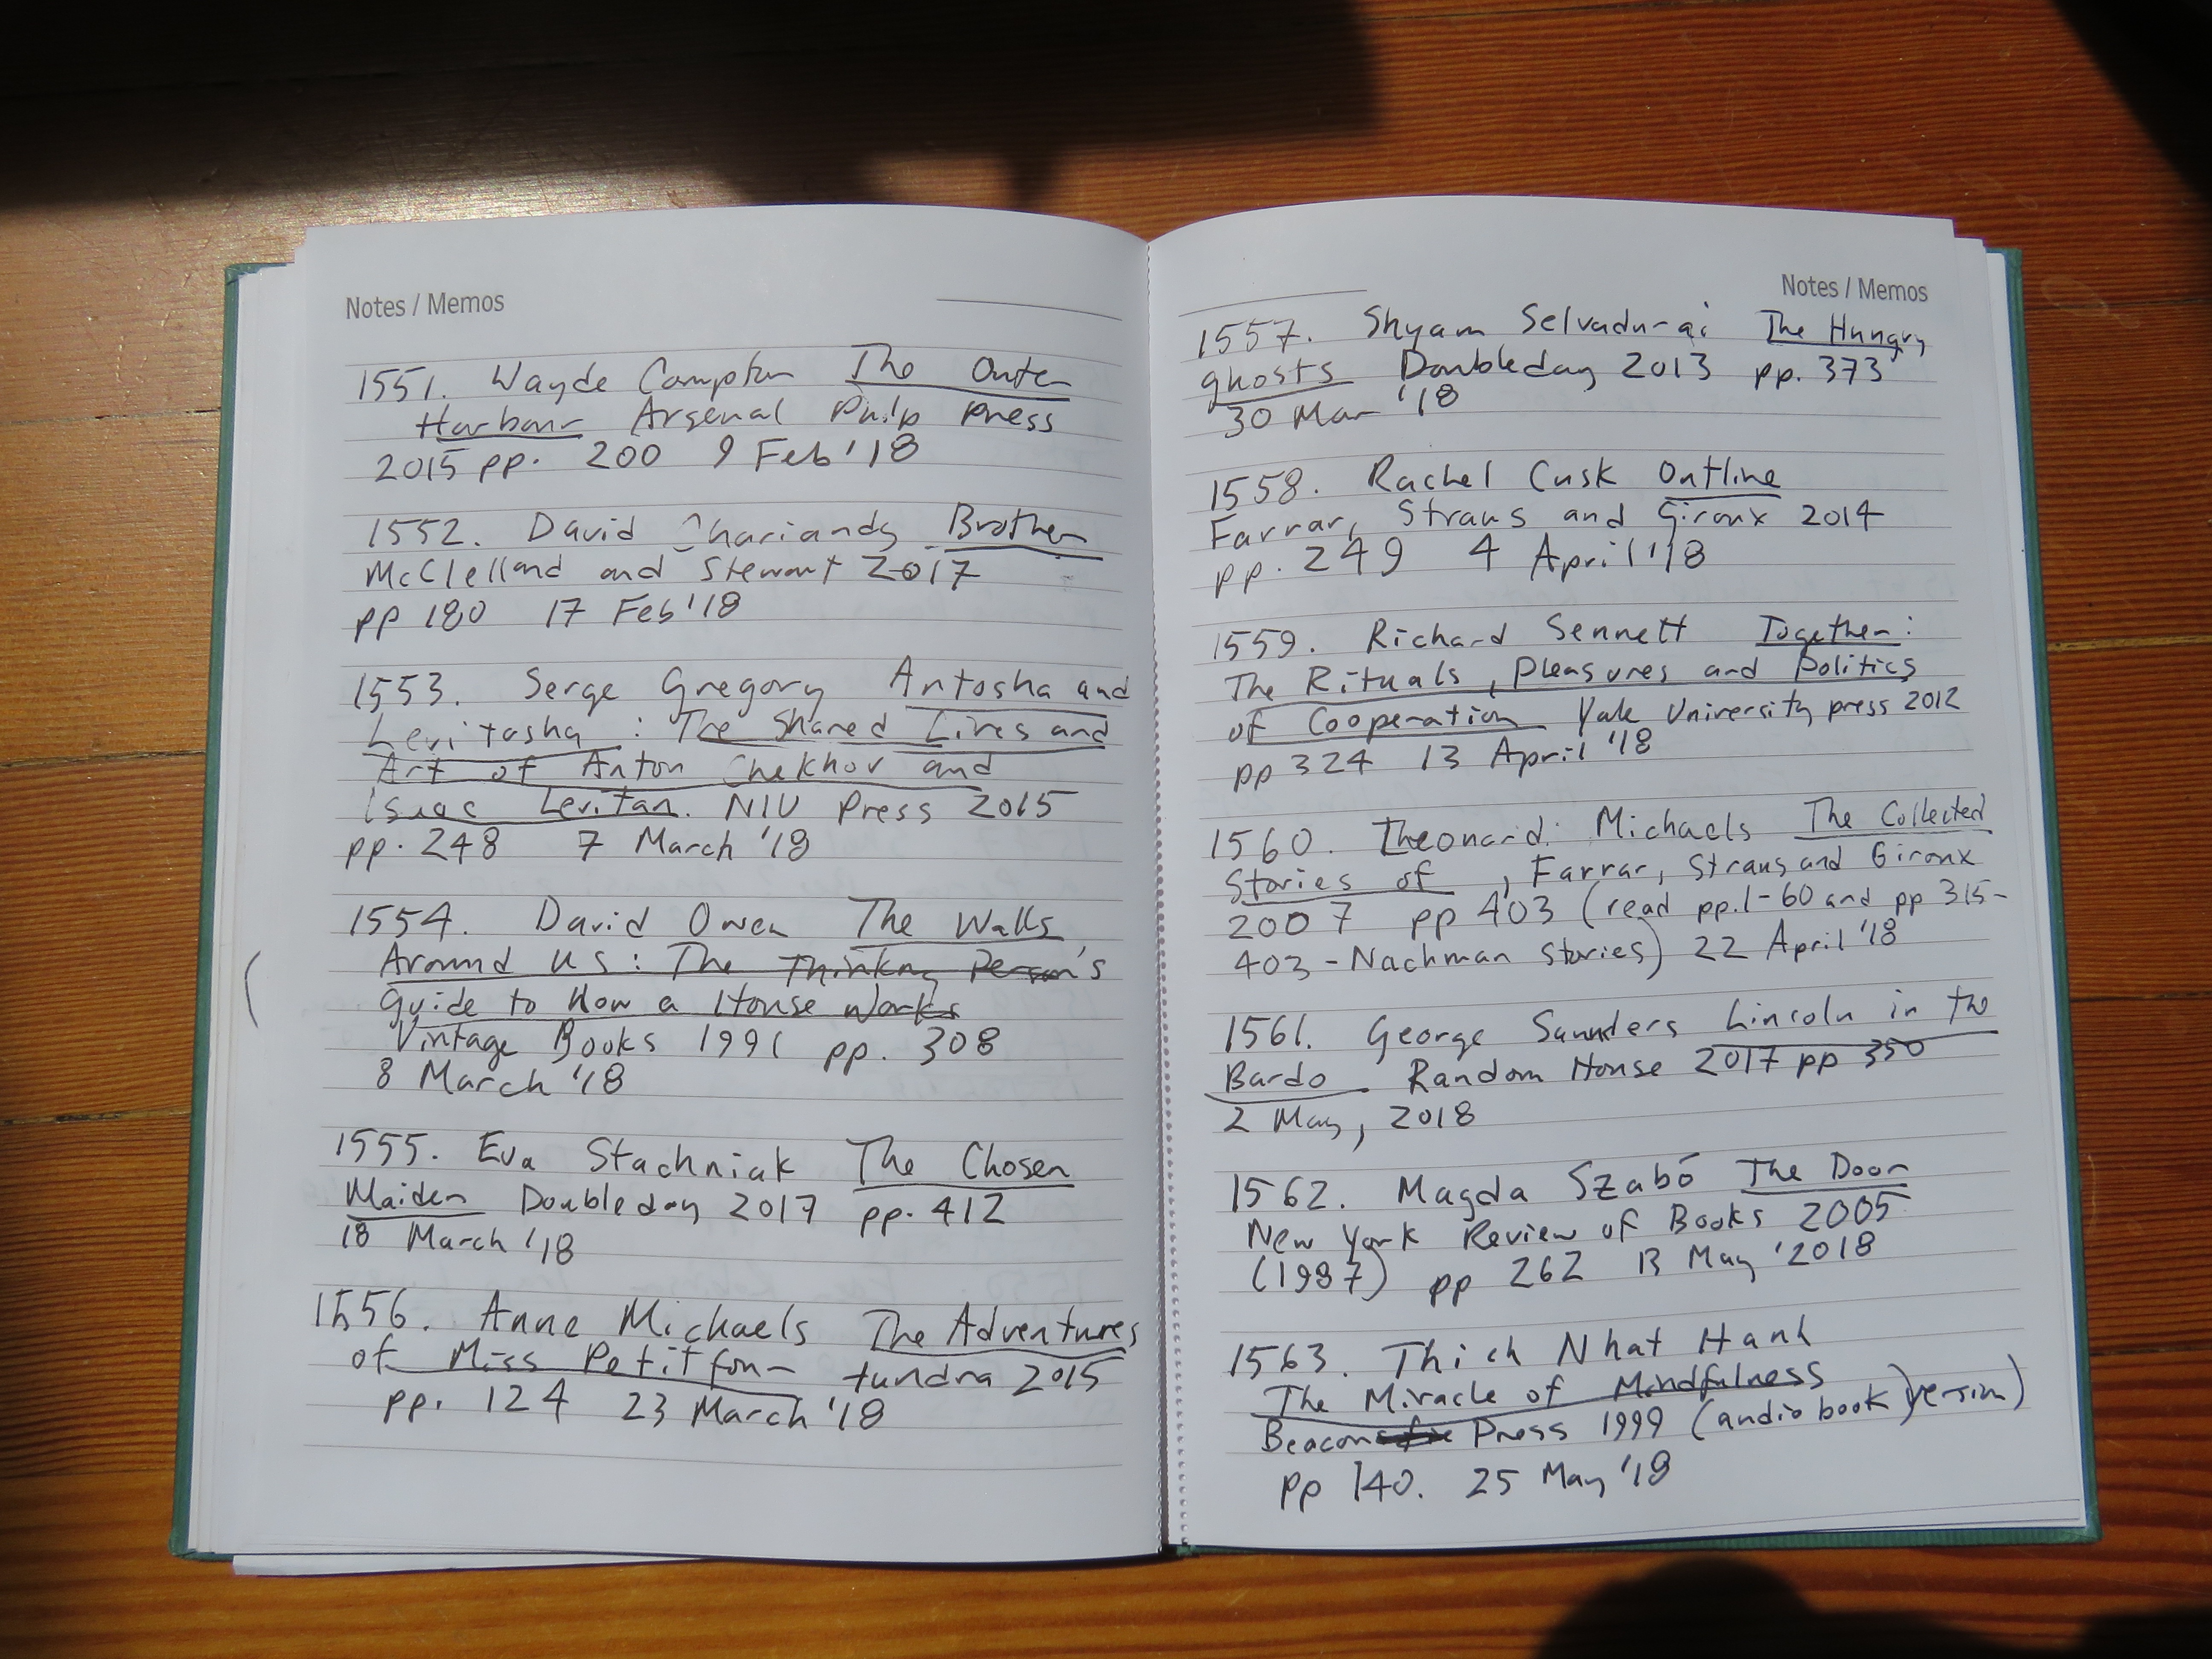 Notes / Memos
1551. Wayde Compton The Outer
Harbour Arsenal Pulp Press
2015 pp. 200 9 Feb '18
1552. David Chariandy Brother
McClelland and Stewart 2017
pp 180 17 Feb '18
1553. Serge Gregory Antosha and
Levitasha : The Shared Lives and
Art of Anton Chekhov and
Isaac Levitan. NIU Press 2015
pp. 248 7 March '18
1554. David Owen The Walls
Around Us : The Thinking Person's
Guide to How a House Works
Vintage Books 1991 pp. 308
8 March '18
1555. Eva Stachniak The Chosen
Maiden Doubleday 2017 pp. 412
18 March '18
1556. Anne Michaels The Adventures
of Miss Petitfour tundra 2015
pp. 124 23 March '18
Notes / Memos
1557. Shyam Selvadurai The Hungry
ghosts Doubleday 2013 pp. 373
30 Mar '18
1558. Rachel Cusk Outline
Farrar, Straus and Giroux 2014
pp. 249 4 April '18
1559. Richard Sennett Together:
The Rituals, Pleasures and Politics
of Cooperation Yale University press 2012
pp 324 13 April '18
1560. Michaels The Collected
Stories of , Farrar, Straus and Giroux
2007 pp 403 (read pp.1-60 and pp 315-
403 - Nachman stories) 22 April '18
1561. George Saunders Lincoln in the
Bardo Random House 2017 pp 350
2 May, 2018
1562. Magda Szabó The Door
New York Review of Books 2005
(1987) pp 262 13 May '2018
1563. Thich Nhat Hanh
The Miracle of Mindfulness
Beacon Press 1999 (audiobook version)
pp 140. 25 May '18